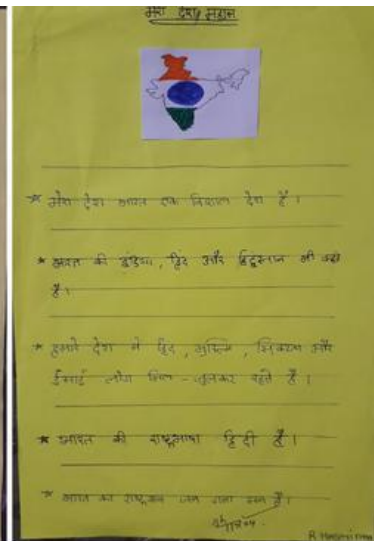 मेरा देश महान
* मेरा देश भारत एक विशाल देश है।
* भारत को इंडिया, हिंद और हिंदुस्तान भी कहते
है।
* हमारे देश में हिंदू, मुस्लिम, सिक्ख और
ईसाई लोग मिल-जुलकर रहते हैं।
* भारत की राष्ट्रभाषा हिंदी है।
* भारत का राष्ट्रगान जन गण मन है।